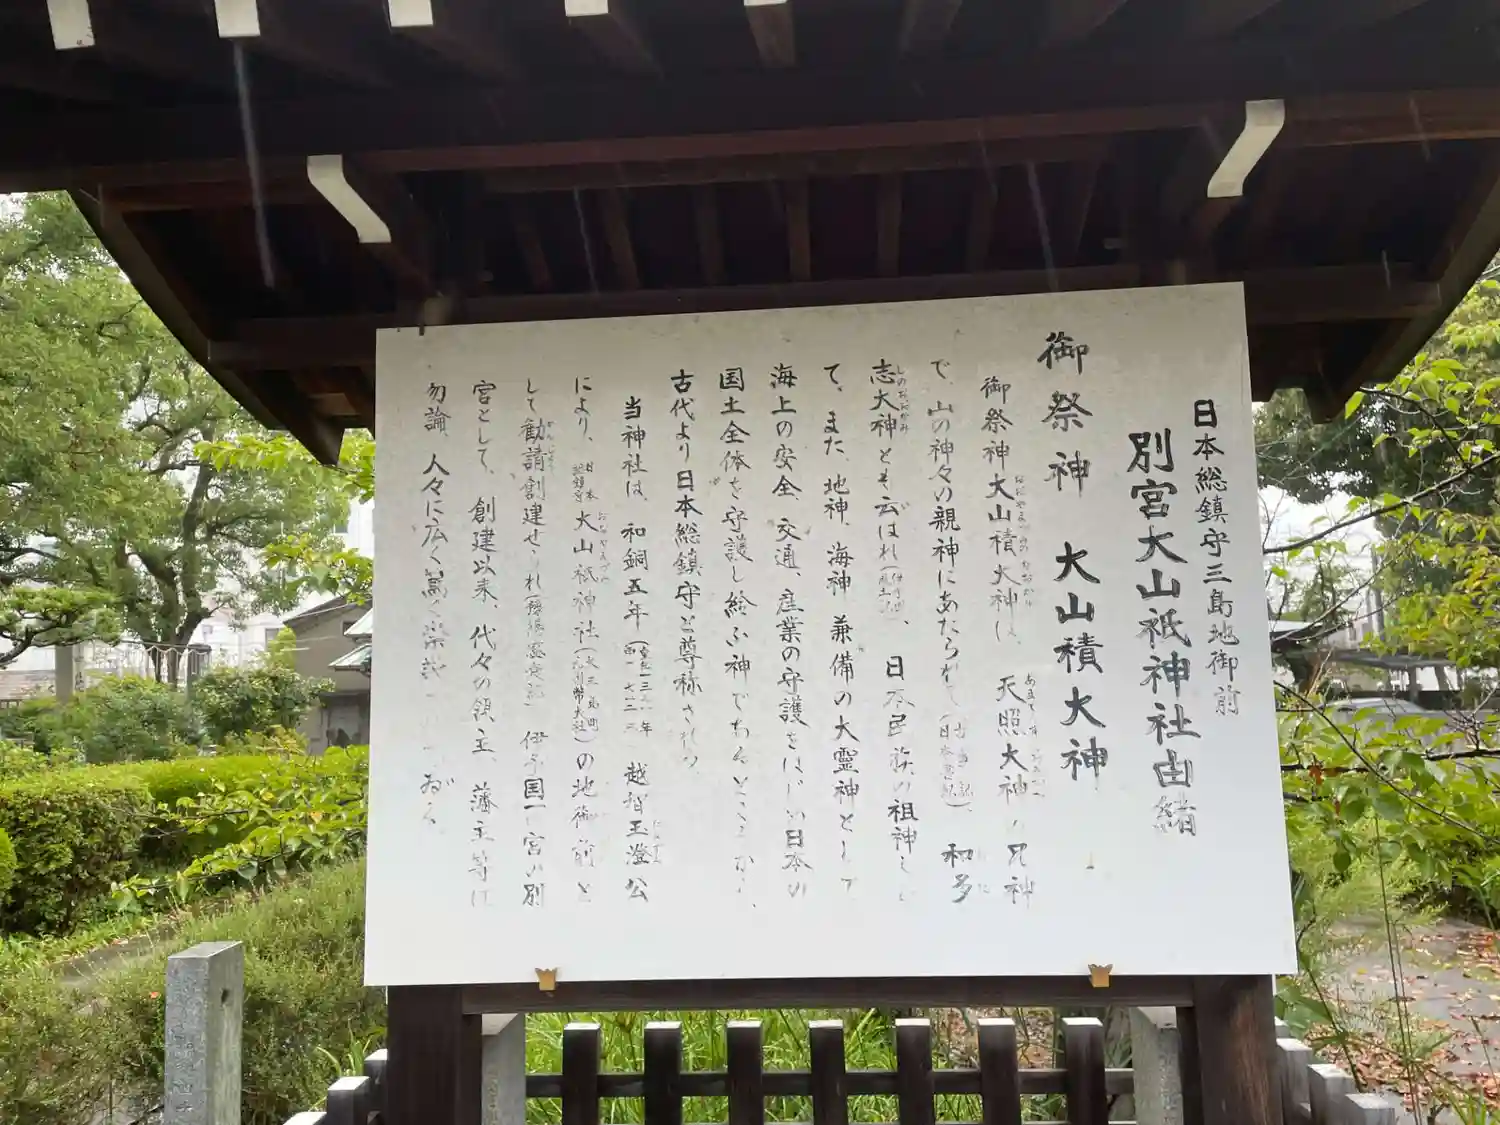 日本総鎮守三島地御前
別宮大山祇神社由緒
御祭神 大山積大神
御祭神大山積大神は、天照大神の兄神
で、山の神々の親神にあたられ(古事記 日本書紀)、和多
志大神とも云はれ(伊予国風土記)、日本民族の祖神とし
て、また、地神、海神兼備の大霊神として
海上の安全、交通、産業の守護をはじめ日本の
国土全体を守護し給ふ神であるところから、
古代より日本総鎮守と尊称され
当神社は、和銅五年(皇紀一三七一年 西暦七一二)越智玉澄公
により、日本総鎮守大山祇神社(大三島町 元国幣大社)の地御前と
して勧請創建せられ 伊予国一宮の別
宮として、創建以来、代々の領主、藩主等は
勿論、人々に広く篤く崇敬